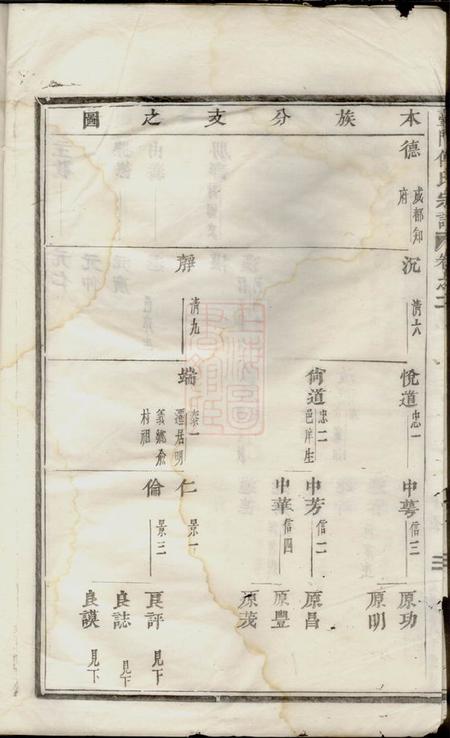 本族分支之圖
傅氏宗譜 卷之二
德 成都知府
沉 清六
靜 清九
悅道 忠一
尙道 忠二 邑庠生
端 泰一 遷居明義鄉 村祖
中蕚 信三
中芳 信二
中華 信四
仁 景一
倫 景三
原功
原明
原昌
原豐
原茂
良評 見下
良誌 見下
良謨 見下